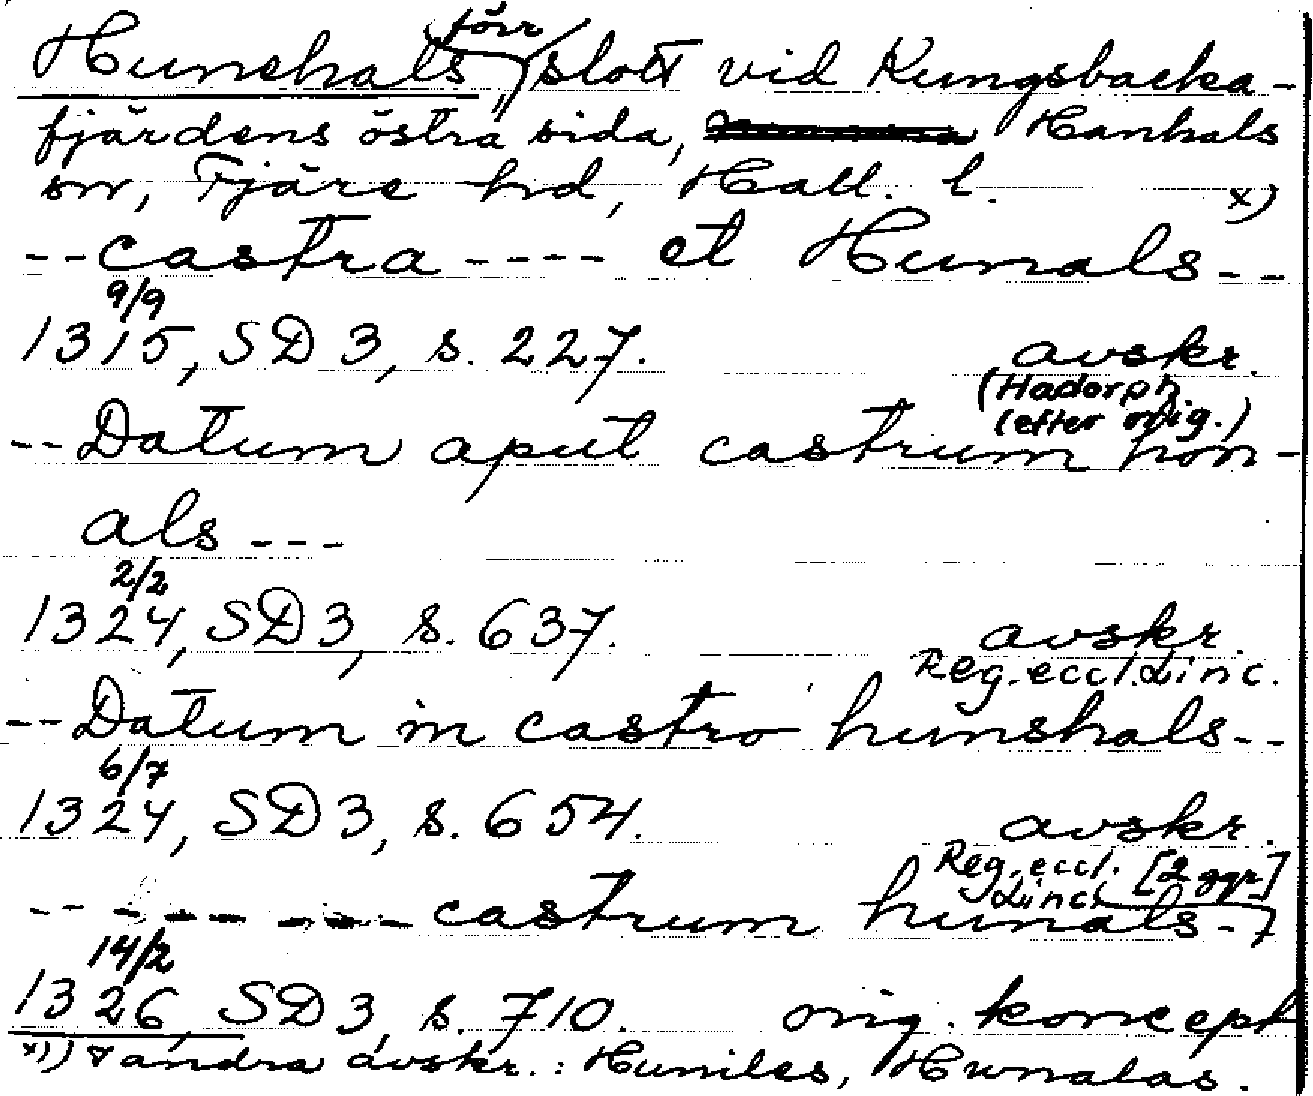 Hunehals, förr slott vid Kungsbacka-
fjärdens östra sida, Hanhals
sn, Fjäre hd, Hall. l.
x)
--castra---- et Hunals--
9/9
1315, SD 3, s. 227. avskr.
(Hadorph
(efter orig.)
--Datum aput castrum hon-
als---
2/2
1324, SD 3, s. 637. avskr.
Reg. eccl. Linc.
--Datum in castro hunshals--
6/7
1324, SD 3, s. 654. avskr.
Reg. eccl. [2 ggr]
Linc.
---------castrum hunals-
14/2
1326, SD 3, s. 710. orig. koncept
x)) andra avskr.: Huniles, Hunalas.